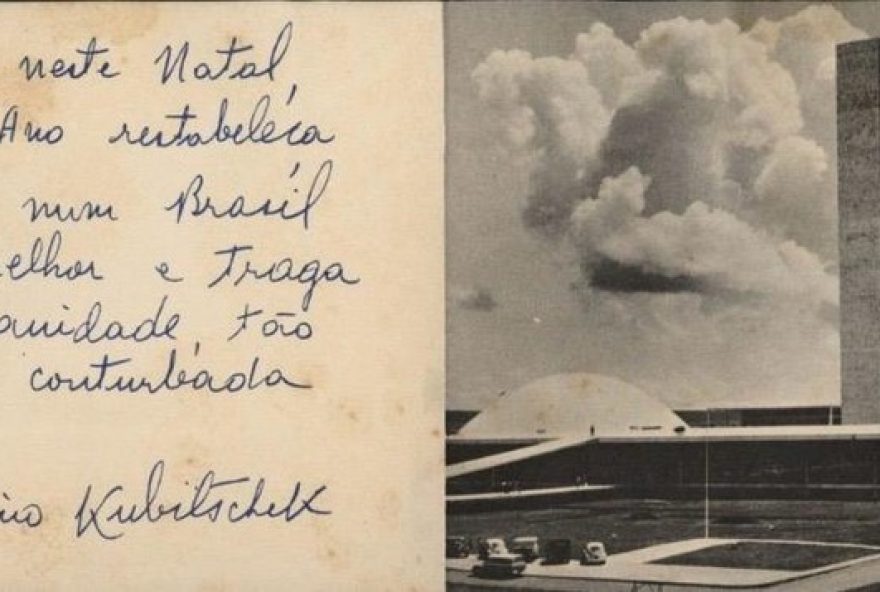 neste Natal
Ano restabeleça
num Brasil
elhor e traga
anidade, tão
conturbada
ino Kubitschek